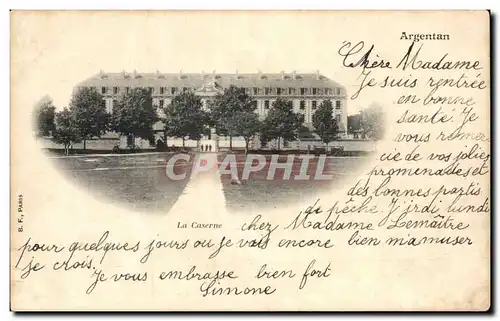 Argentan
Chère Madame
Je suis rentrée
en bonne
santé. Je
vous remer
cie de vos jolies
promenades et
des bonnes partis
de pêche. J'irai lundi
chez Madame Lemaître
La Caserne
pour quelques jours ou je vais encore bien m'amuser
je crois. Je vous embrasse bien fort
Simone
B. F., PARIS
CPAPHIL.COM